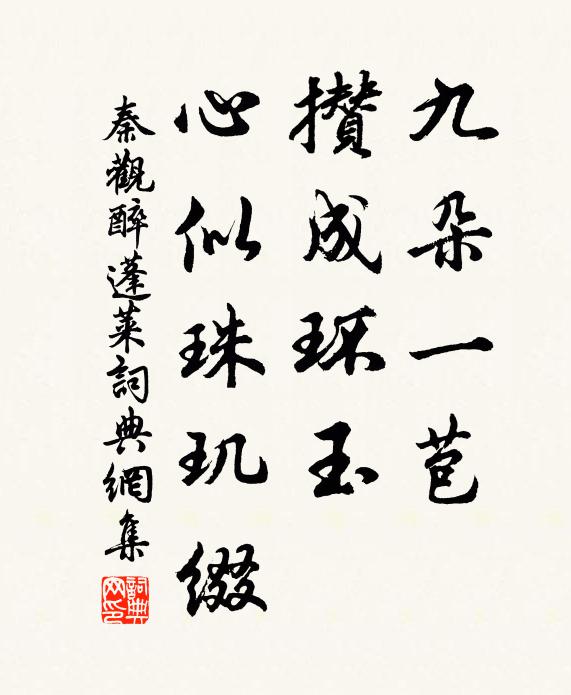 九朵一苞
攒成环玉
心似珠玑缀
秦觀醉蓬萊詞典網集
詞典網印